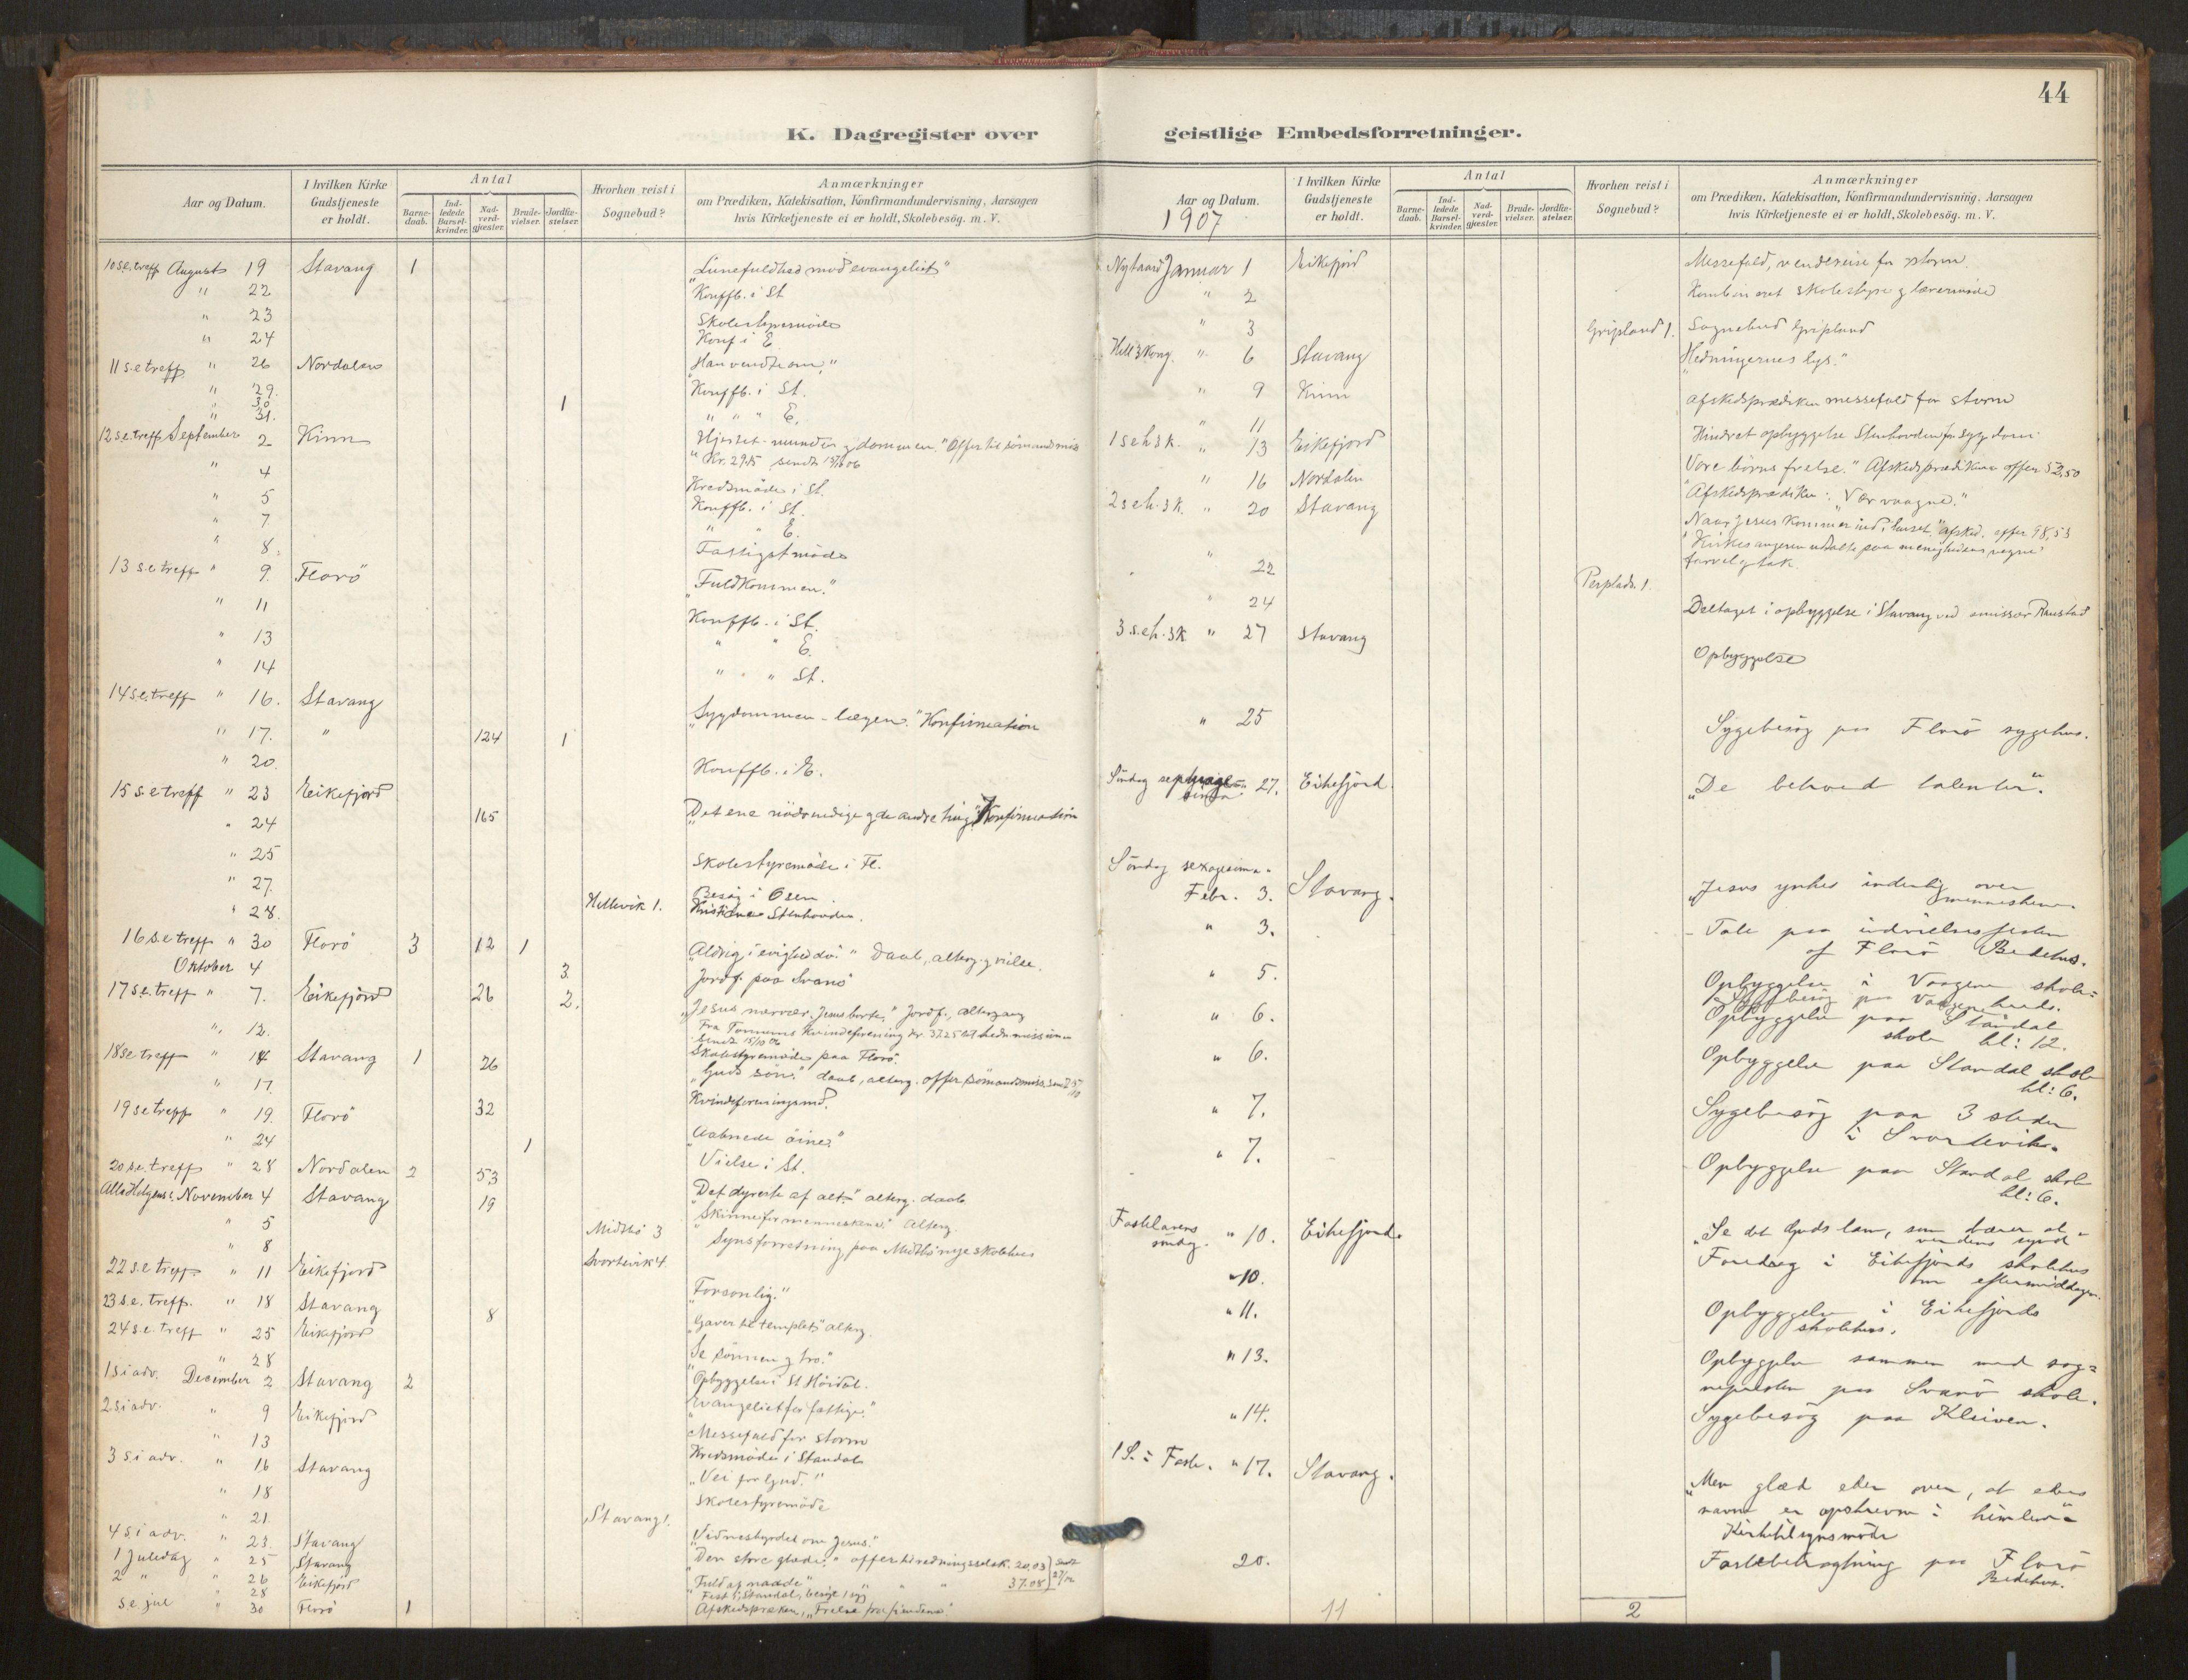 44
K. Dagregister over
geistlige Embedsforretninger.
Aar og Datum.
I hvilken Kirke Gudstjeneste er holdt.
Antal
Barnedaab.
Indledede Barselkvinder.
Nadverdgjæster.
Brudevielser.
Jordfæstelser.
Hvorhen reist i Sognebud?
Anmærkninger
om Prædiken, Katekisation, Konfirmandundervisning, Aarsagen
hvis Kirketjeneste ei er holdt, Skolebesög. m. V.
10 s.e. treff August 19 Stavang 1
" 22 Konffb. i St.
" 23 Skolestyremöde
" 24 Konf i E
11 s.e treff " 26 Nordalen "Han vendte om."
" 29. Konffb. i St.
" 30 1
" 31. " " " E.
12 s.e. treff. September 2 Kinn "Hjertet - munden g dommen." Offer til sömandsmis
Kr. 29.15 sendt
" 4 Kredsmöde i St.
" 5 Konffb. i St.
" 7 " " E.
" 8. Fattigstmöde
13 s.e treff " 9. Florö "Fuldkommen."
" 11 Konffb. i St.
" 13 " " E.
" 14 " " St.
14 s.e. treff " 16. Stavang "Sygdommen - lægen." Konfirmation
" 17. " 124 1
" 20. Konffb. i E.
15 s.e treff " 23 Eikefjord "Det ene nödvendige g de andre ting" Konfirmation
" 24 165
" 25 Skolestyremöde i Fl.
" 27. Besög i Osen.
" 28. Hellevik 1. Stenhovden.
16 s.e treff " 30 Florö 3 12 1 "Aldrig i evighed dö." Daab, alterg. g vielse.
Oktober 4 3 Jordf. paa Svanö
17 s.e. treff " 7. Eikefjord 26 2. "Jesus nærvær. Jesus borte." Jordf., altergang
Fra Kvindeforening kr. 37.25 til hedn. missionen
sendt 15/10 06
" 12. Skolestyremöde paa Florö
18 s.e treff " 14 Stavang 1 26 "Guds sön." daab, alterg. offer sömandsmis.
" 17. Kvindeforeningsmd.
19 s.e treff " 19. Florö 32 "Aabnede öine."
" 24 1 Vielse i St.
20 s.e. treff " 28 Nordalen 2 53 "Det dyreste af alt." alterg. daab
Alle Helgens. November 4 Stavang 19 "Skinne for menneskene" Alterg.
" 5 Midtbö 3 Synsforretning paa Midtbö nye skolehus
" 8 Svortevik 4.
22 s.e treff. " 11 Eikefjord "Forsonlig."
23 s.e. treff. " 18 Stavang 8 "Gaver til templet" alterg.
24 s.e. treff " 25 Eikefjord "Se sönnen g tro."
" 28 Opbyggelse i St Hördal.
1 s i adv. December 2 Stavang 2 "Evangeliet for fattige."
2 s i adv. " 9 Eikefjord Messefald for storm
" 13 Kredsmöde i Standal
3 s i adv. " 16 Stavang "Vei for Gud."
" 18 Skolestyremöde
" 21. Stavang 1.
4 s. i adv. " 23. Stavang "Vidnesbyrdet om Jesus."
1 Juledag " 25 Stavang "Den store glæde." offer til redningsselsk. 20,03
2 " " 26 Eikefjord "Fuld af naade" " " 37.08
" 28 Fest i Standal,
s.e. jul " 30 Florö 1 Afskedspræken, "Frelse fra synderne"
Aar og Datum.
1907
I hvilken Kirke Gudstjeneste er holdt.
Antal
Barnedaab.
Indledede Barselkvinder.
Nadverdgjæster.
Brudevielser.
Jordfæstelser.
Hvorhen reist i Sognebud?
Anmærkninger
om Prædiken, Katekisation, Konfirmandundervisning, Aarsagen
hvis Kirketjeneste ei er holdt, Skolebesög. m. V.
Nytaarsd Januar 1 Eikefjord Messefald, vendereise for storm.
" 2 Kombineret skolestyre g lærermöde
" 3 Gripland 1. Sognebud Gripland
Hell 3 Kong. " 6 Stavang "Hedningernes lys."
" 9 Kinn Afskedsprædiken messefald for storm
" 11 Hindret opbyggelse Stenhovden for sygdom
1 s e h 3 k. " 13 Eikefjord "Vore börns frelse." Afskedsprædiken offer 52,50
" 16 Nordalen Afskedsprædiken: "Vær vaagne."
2 s e h. 3 k. " 20 Stavang "Naar Jesus kommer ind i huset." afsked. offer 98,53
Kirkesangeren udtalte paa menighedens vegne
farvel g tak.
" 22 Perplads. 1.
" 24 Deltaget i opbyggelse i Stavang ved emissær Ramstad
3 s.e.h. 3 k " 27 Stavang Opbyggelse
" 25 Sygebesög paa Florö sygehus.
Söndag 27. Eikefjord "De betroede talenter."
Söndag sexagesima.
Febr. 3. Stavang. "Jesus ynkes inderlig over
menneskene.
" 3. Tale paa indvielsesfesten
af Florö Bedehus.
" 5. Opbyggelse i Vaagene skole
g Sygebesög paa Vaagene
" 6. Opbyggelse paa Standal
skole kl: 12.
" 6. Opbyggelse paa Standal skole
kl: 6.
" 7. Sygebesög paa 3 steder
i Svortevik.
" 7. Opbyggelse paa Standal skole
kl: 6.
Fastelavens söndag. " 10. Eikefjord. "Se det Guds lam, som bærer al
verdens synd"
" 10. Foredrag i Eikefjords skolehus
om eftermiddagen.
" 11. Opbyggelse i Eikefjords
skolehus.
" 13. Opbyggelse sammen med sog=
nepresten paa Svanö skole.
" 14. Sygebesög paa Kleiven.
1 S. i Faste. " 17. Stavang. "Men glæd eder over, at eders
navne er opskrevne i himlene"
Kirketilsynsmöde
20. Fastebetragtning paa Florö
Bedehus.
11
2